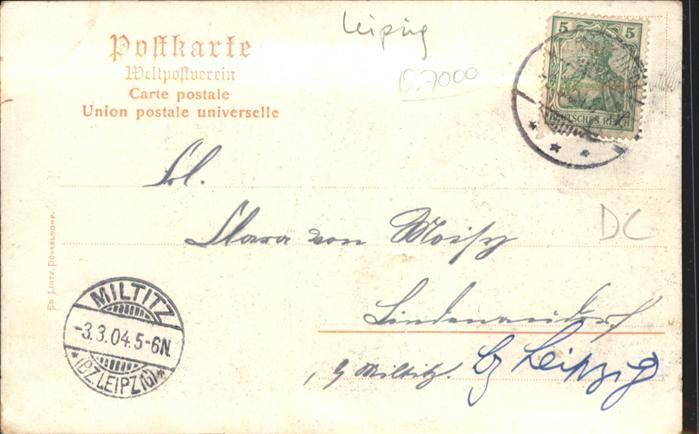 Postkarte
Weltpostverein
Carte postale
Union postale universelle
Leipzig
0.7000
5 5
DEUTSCHES REICH
Frl.
Clara von
DC
Lindennaundorf
b/ Miltitz. bz Leipzig
MILTITZ
-3.3.04.5-6N.
*(BZ. LEIPZIG)*
Lintz, Düsseldorf.